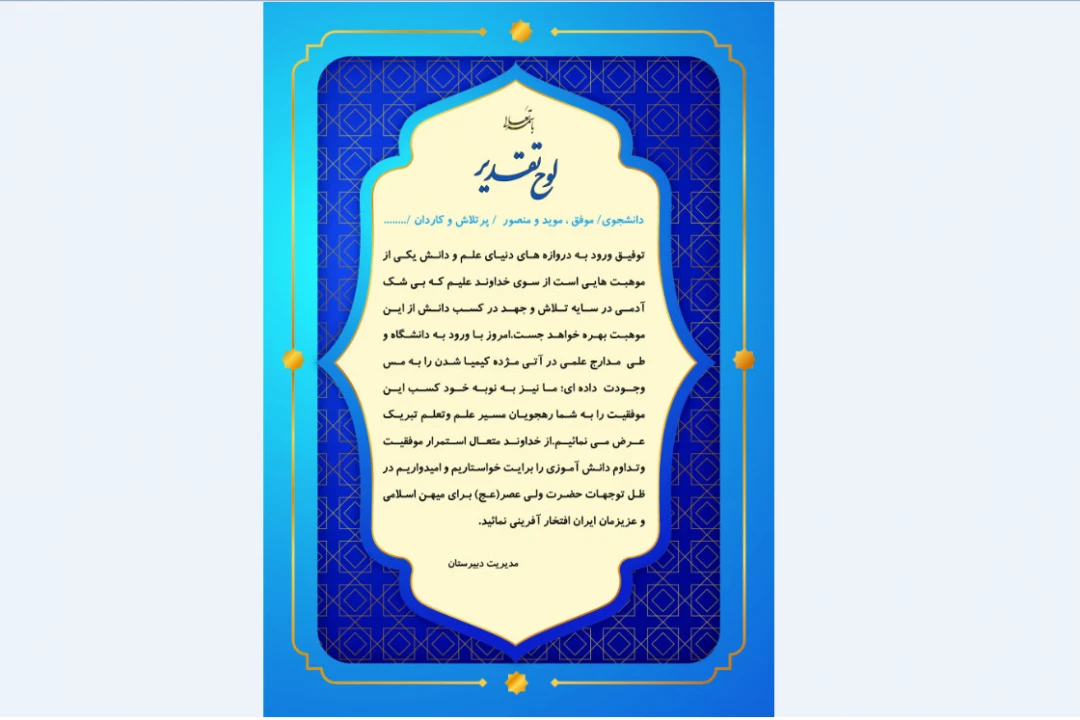 باسمه تعالی
لوح تقدیر
دانشجوی/ موفق ، موید و منصور / پرتلاش و کاردان /........
توفیق ورود به دروازه های دنیای علم و دانش یکی از
موهبت هایی است از سوی خداوند علیم که بی شک
آدمی در سایه تلاش و جهد در کسب دانش از این
موهبت بهره خواهد جست.امروز با ورود به دانشگاه و
طی مدارج علمی در آتی مژده کیمیا شدن را به مس
وجودت داده ای؛ ما نیز به نوبه خود کسب این
موفقیت را به شما رهجویان مسیر علم وتعلم تبریک
عرض می نمائیم.از خداوند متعال استمرار موفقیت
وتداوم دانش آموزی را برایت خواستاریم و امیدواریم در
ظل توجهات حضرت ولی عصر(عج) برای میهن اسلامی
و عزیزمان ایران افتخار آفرینی نمائید.
مدیریت دبیرستان